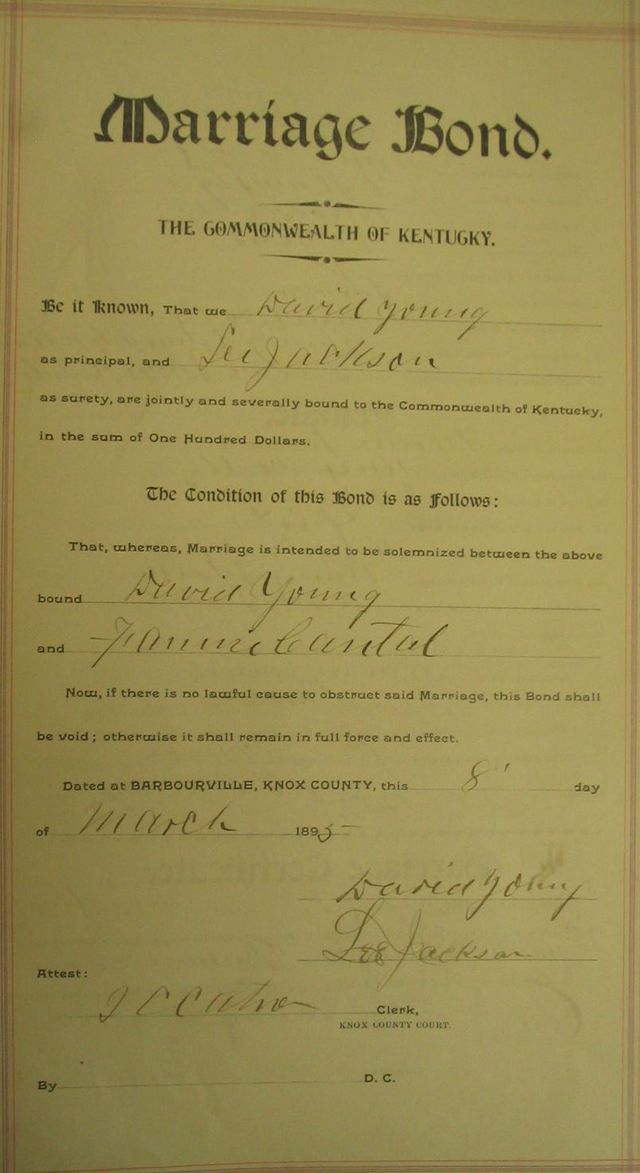 Marriage Bond.
THE COMMONWEALTH OF KENTUCKY.
Be it Known, That we David Young
as principal, and Lee Jackson
as surety, are jointly and severally bound to the Commonwealth of Kentucky,
in the sum of One Hundred Dollars.
The Condition of this Bond is as Follows:
That, whereas, Marriage is intended to be solemnized between the above
bound David Young
and Fannie
Now, if there is no lawful cause to obstruct said Marriage, this Bond shall
be void; otherwise it shall remain in full force and effect.
Dated at BARBOURVILLE, KNOX COUNTY, this 8' day
of March 1895
David Young
Lee Jackson
Attest:
Clerk,
KNOX COUNTY COURT.
By D. C.